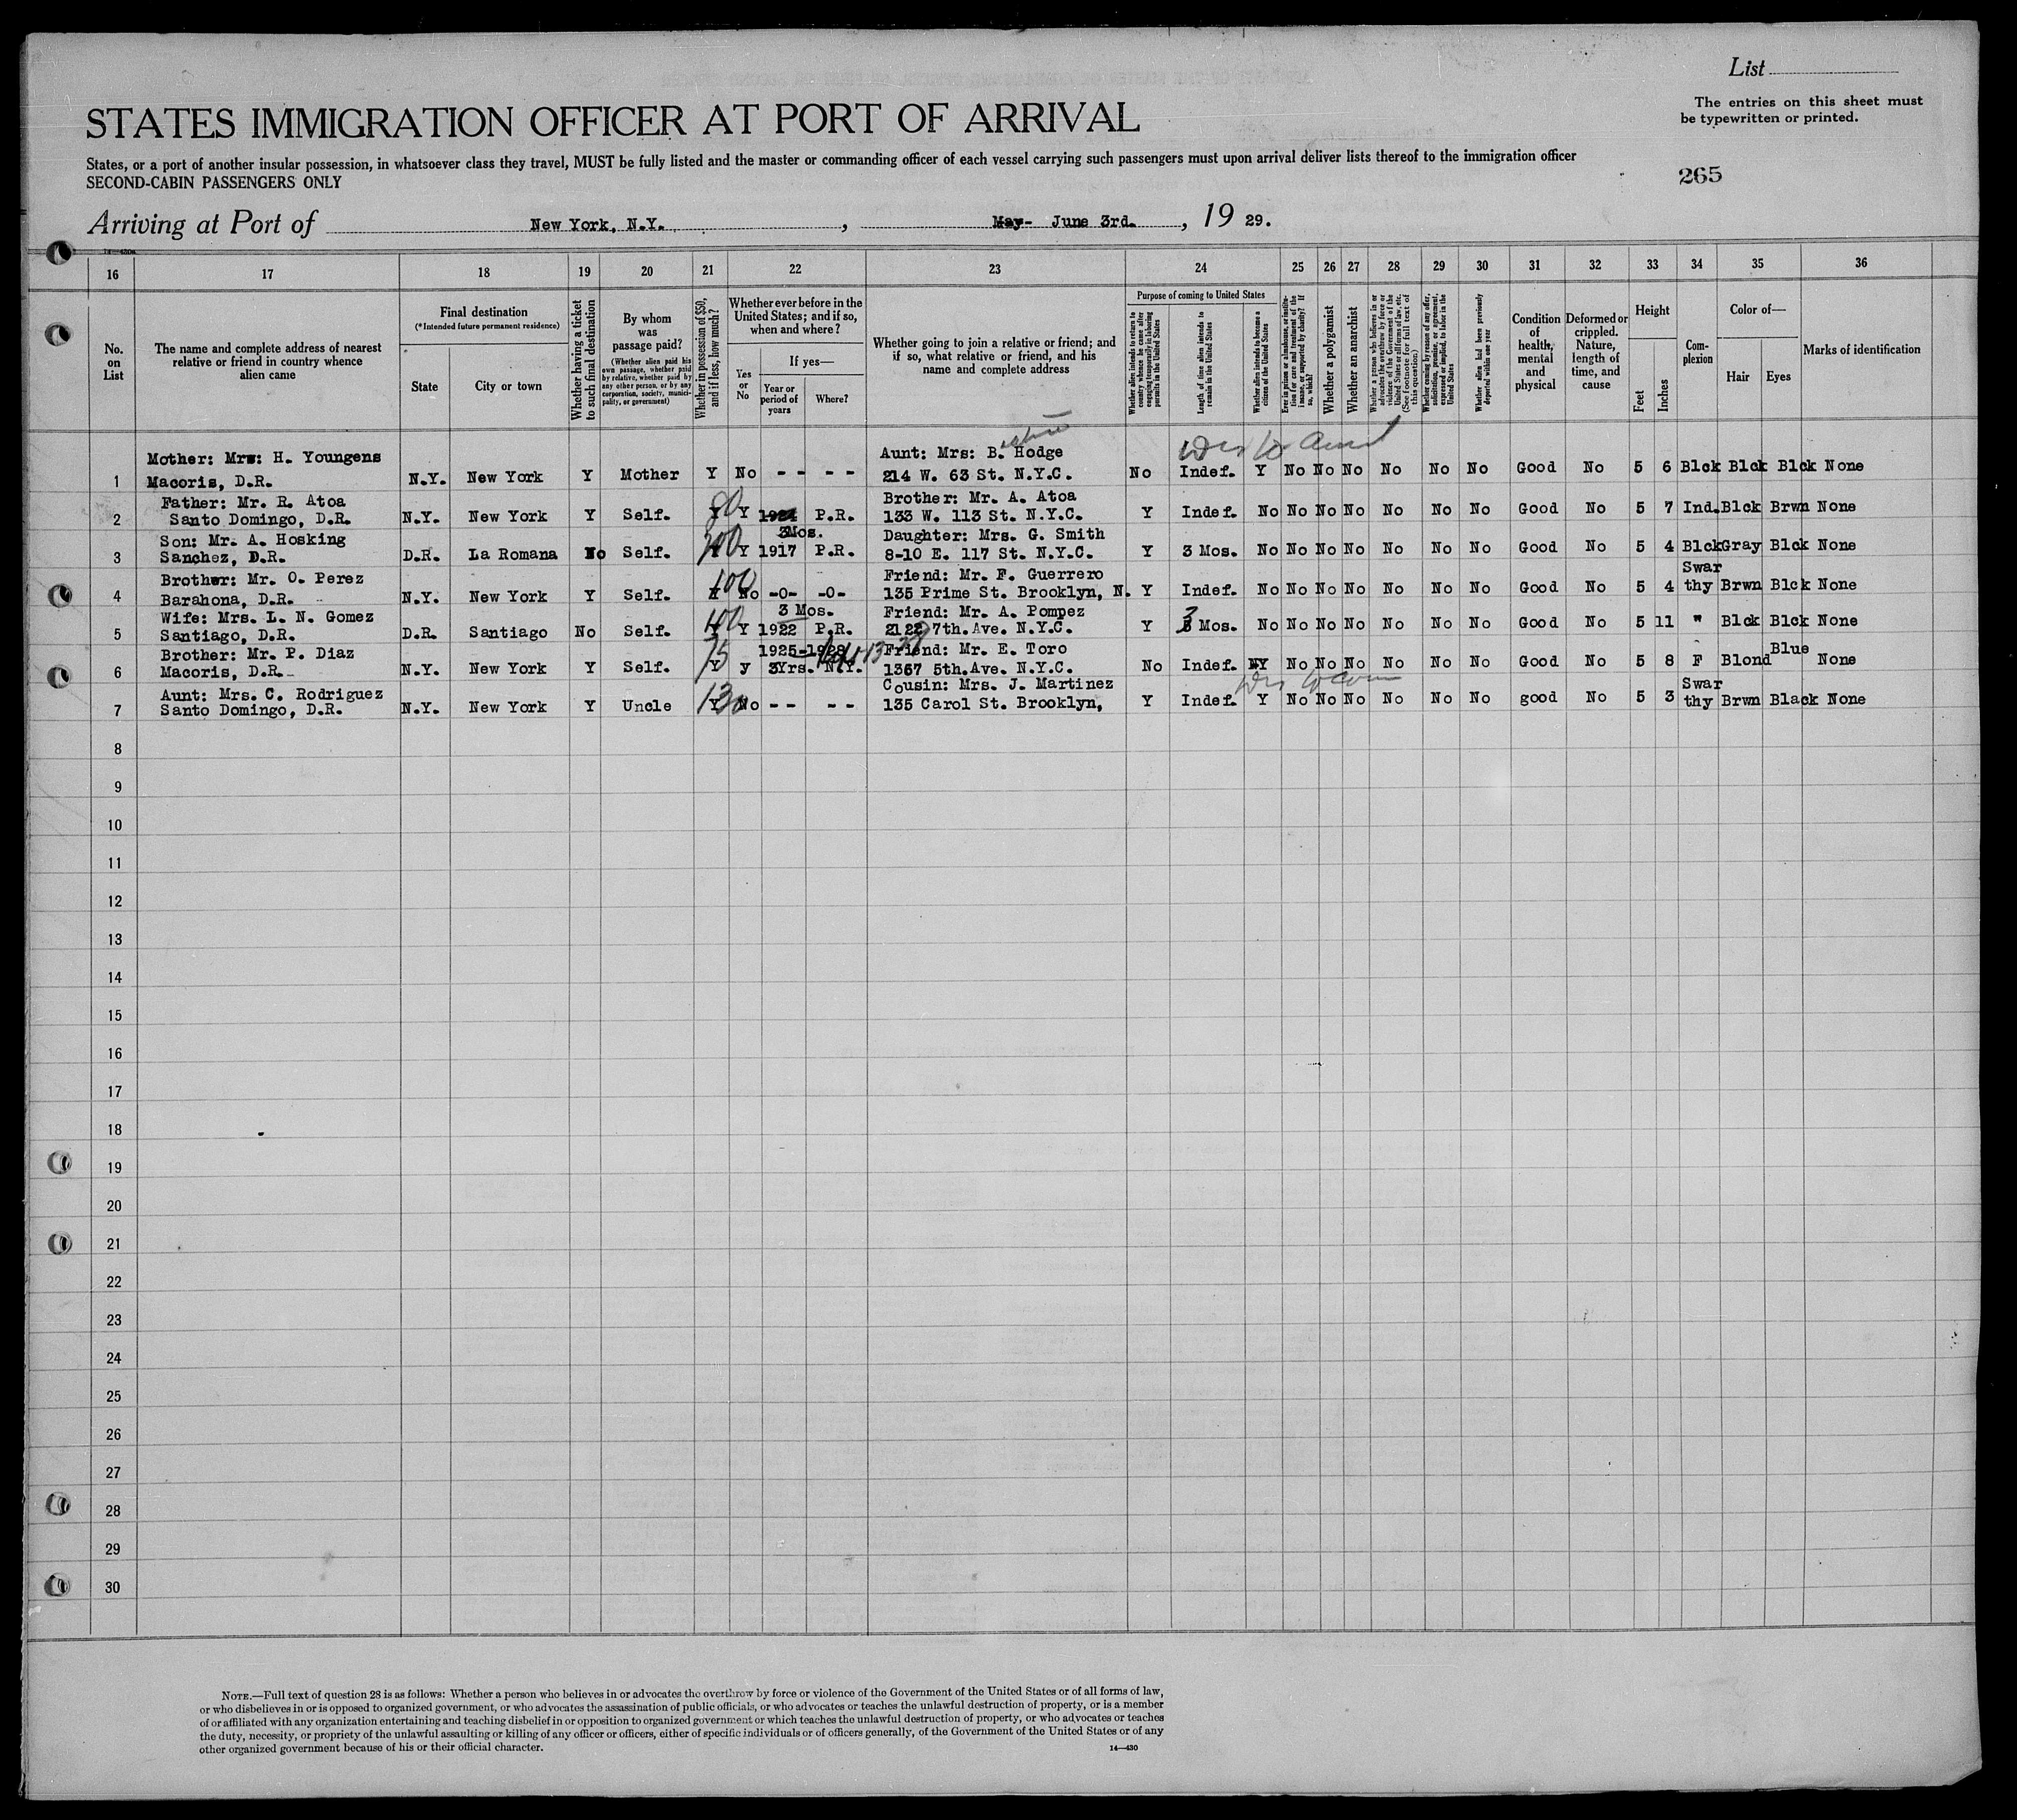 List
The entries on this sheet must
be typewritten or printed.
STATES IMMIGRATION OFFICER AT PORT OF ARRIVAL
States, or a port of another insular possession, in whatsoever class they travel, MUST be fully listed and the master or commanding officer of each vessel carrying such passengers must upon arrival deliver lists thereof to the immigration officer
SECOND-CABIN PASSENGERS ONLY
265
Arriving at Port of New York, N.Y. , May- June 3rd. , 19 29.
16 17 18 19 20 21 22 23 24 25 26 27 28 29 30 31 32 33 34 35 36
No. on List
The name and complete address of nearest relative or friend in country whence alien came
Final destination
(*Intended future permanent residence)
State
City or town
Whether having a ticket to such final destination
By whom was passage paid?
(Whether alien paid his own passage, whether paid by relative, whether paid by any other person, or by any corporation, society, municipality, or government)
Whether in possession of $50, and if less, how much?
Whether ever before in the United States; and if so, when and where?
Yes or No
If yes—
Year or period of years
Where?
Whether going to join a relative or friend; and if so, what relative or friend, and his name and complete address
Purpose of coming to United States
Whether alien intends to return to country whence he came after engaging temporarily in laboring pursuits in the United States
Length of time alien intends to remain in the United States
Whether alien intends to become a citizen of the United States
Ever in prison or almshouse, or institution for care and treatment of the insane, or supported by charity? If so, which?
Whether a polygamist
Whether an anarchist
Whether a person who believes in or advocates the overthrow by force or violence of the Government of the United States or all forms of law, etc. (See footnote for full text of this question.)
Whether coming by reason of any offer, solicitation, promise, or agreement, expressed or implied, to labor in the United States
Whether alien had been previously deported within one year
Condition of health, mental and physical
Deformed or crippled. Nature, length of time, and cause
Height
Feet
Inches
Complexion
Color of—
Hair
Eyes
Marks of identification
Mother: Mrs: H. Youngens Aunt: Mrs: B. Hodge
1 Macoris, D.R. N.Y. New York Y Mother Y No - - - - 214 W. 63 St. N.Y.C. No Indef. Y No No No No No No Good No 5 6 Blck Blck Blck None
Father: Mr. R. Atoa 80 Brother: Mr. A. Atoa
2 Santo Domingo, D.R. N.Y. New York Y Self. Y Y P.R. 133 W. 113 St. N.Y.C. Y Indef. No No No No No No No Good No 5 7 Ind. Blck Brwn None
Son: Mr. A. Hosking 3Mos. Daughter: Mrs. G. Smith
3 Sanchez, D.R. D.R. La Romana No Self. Y Y 1917 P.R. 8-10 E. 117 St. N.Y.C. Y 3 Mos. No No No No No No No Good No 5 4 Blck Gray Blck None
Brother: Mr. O. Perez 100 Friend: Mr. F. Guerrero Swar
4 Barahona, D.R. N.Y. New York Y Self. No -0- -0- 135 Prime St. Brooklyn, N. Y Indef. No No No No No No No Good No 5 4 thy Brwn Blck None
Wife: Mrs. L. N. Gomez 100 3 Mos. Friend: Mr. A. Pompez
5 Santiago, D.R. D.R. Santiago No Self. Y Y 1922 P.R. 2122 7th. Ave. N.Y.C. Y 3 Mos. No No No No No No No Good No 5 11 " Blck Blck None
Brother: Mr. P. Diaz 75 1925-1928 Friend: Mr. E. Toro Blue
6 Macoris, D.R. N.Y. New York Y Self. Y y 3Yrs. N.Y. 1367 5th. Ave. N.Y.C. No Indef. Y No No No No No No Good No 5 8 F Blond None
Aunt: Mrs. C. Rodriguez 130 Cousin: Mrs. J. Martinez Swar
7 Santo Domingo, D.R. N.Y. New York Y Uncle Y No - - - - 135 Carol St. Brooklyn, Y Indef. Y No No No No No No good No 5 3 thy Brwn Black None
8
9
10
11
12
13
14
15
16
17
18
19
20
21
22
23
24
25
26
27
28
29
30
NOTE.—Full text of question 28 is as follows: Whether a person who believes in or advocates the overthrow by force or violence of the Government of the United States or of all forms of law,
or who disbelieves in or is opposed to organized government, or who advocates the assassination of public officials, or who advocates or teaches the unlawful destruction of property, or is a member
of or affiliated with any organization entertaining and teaching disbelief in or opposition to organized government or which teaches the unlawful destruction of property, or who advocates or teaches
the duty, necessity, or propriety of the unlawful assaulting or killing of any officer or officers, either of specific individuals or of officers generally, of the Government of the United States or of any
other organized government because of his or their official character.
14—430